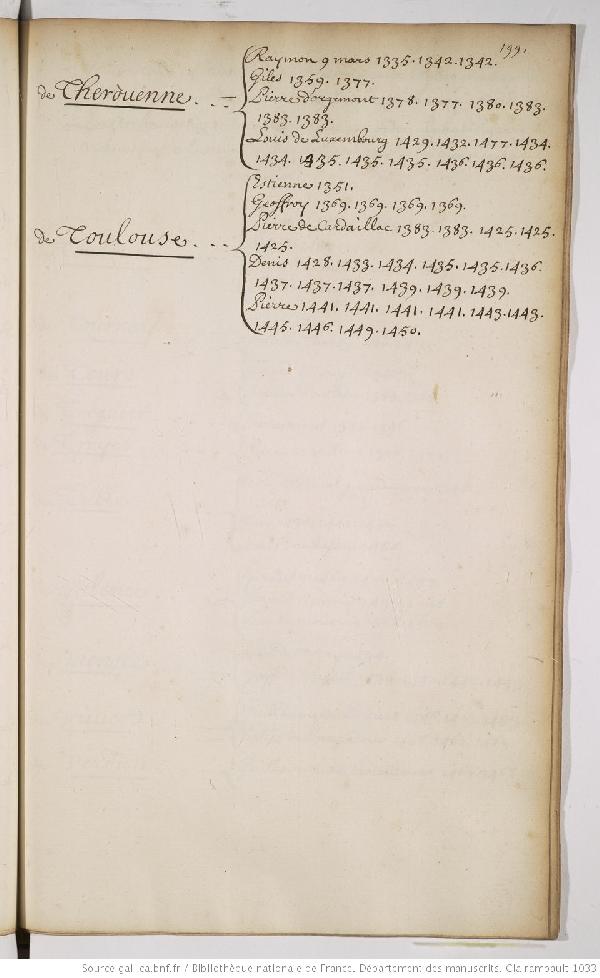 199.
de Therouenne
Raymon 9 mars 1335. 1342. 1342.
Giles 1359. 1377.
Pierre d'orgemont 1378. 1377. 1380. 1383.
1383. 1383.
Louis de Luxembourg 1429. 1432. 1477. 1434.
1434. 1435. 1435. 1435. 1436. 1436. 1436.
de Toulouse
Estienne 1351.
Geoffroy 1369. 1369. 1369. 1369.
Pierre de Cardaillac 1383. 1383. 1425. 1425.
1425.
Denis 1428. 1433. 1434. 1435. 1435. 1436.
1437. 1437. 1437. 1439. 1439. 1439.
Pierre 1441. 1441. 1441. 1441. 1443. 1443.
1445. 1446. 1449. 1450.
Source gallica.bnf.fr / Bibliothèque nationale de France. Département des manuscrits. Clairambault 1033